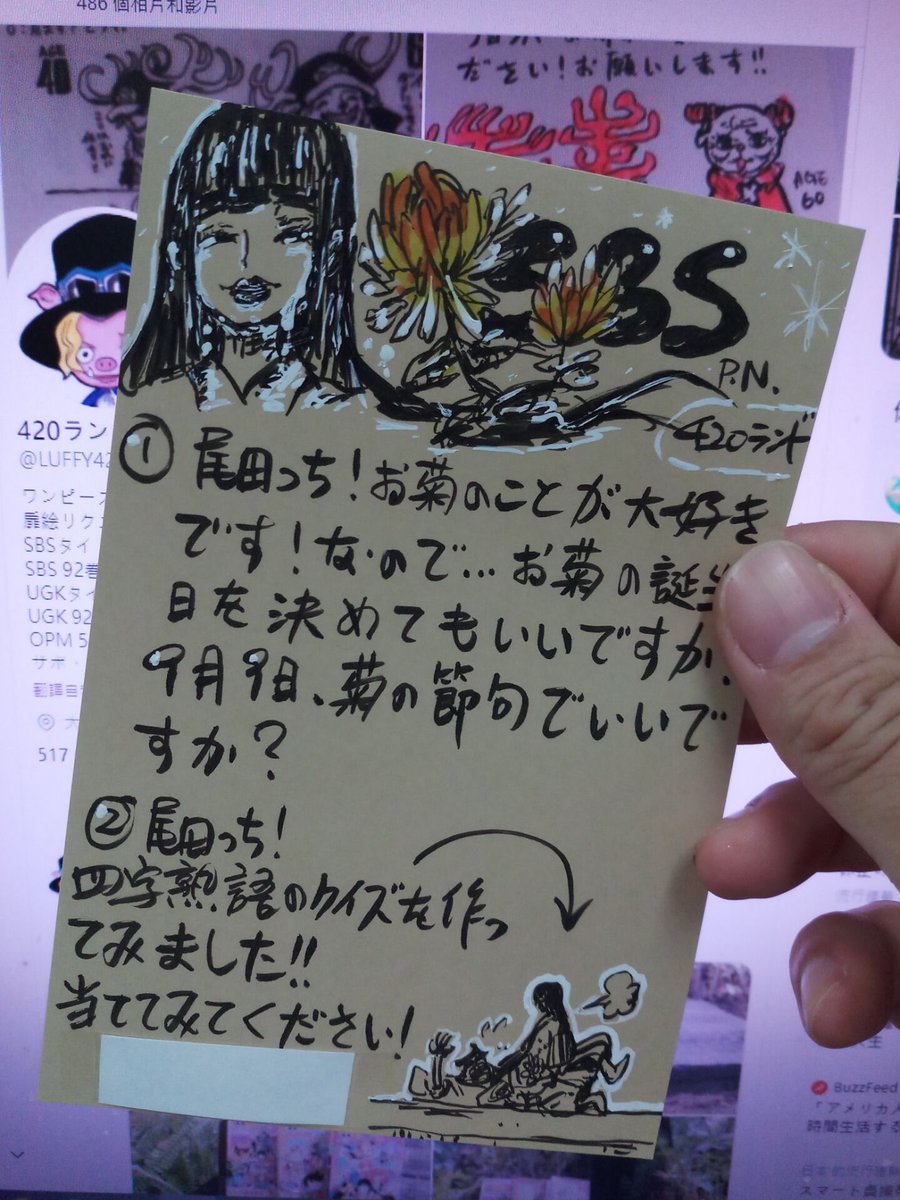 486 個相片和影片
ださい!お願いします!!
AGE
60
SBS
P.N.
420ランド
① 尾田っち!お菊のことが大好き
です!なので...お菊の誕生
日を決めてもいいですか、
9月9日、菊の節句でいいで
すか?
② 尾田っち!
四字熟語のクイズを作っ
てみました!!
当ててみてください!
420ラン
@LUFFY42
ワンピース
扉絵リクエ
SBSタイ
SBS 92巻
UGKタイ
UGK 92
OPM 5
サボ・
翻譯自
517
BuzzFeed
「アメリカ人
時間生活する